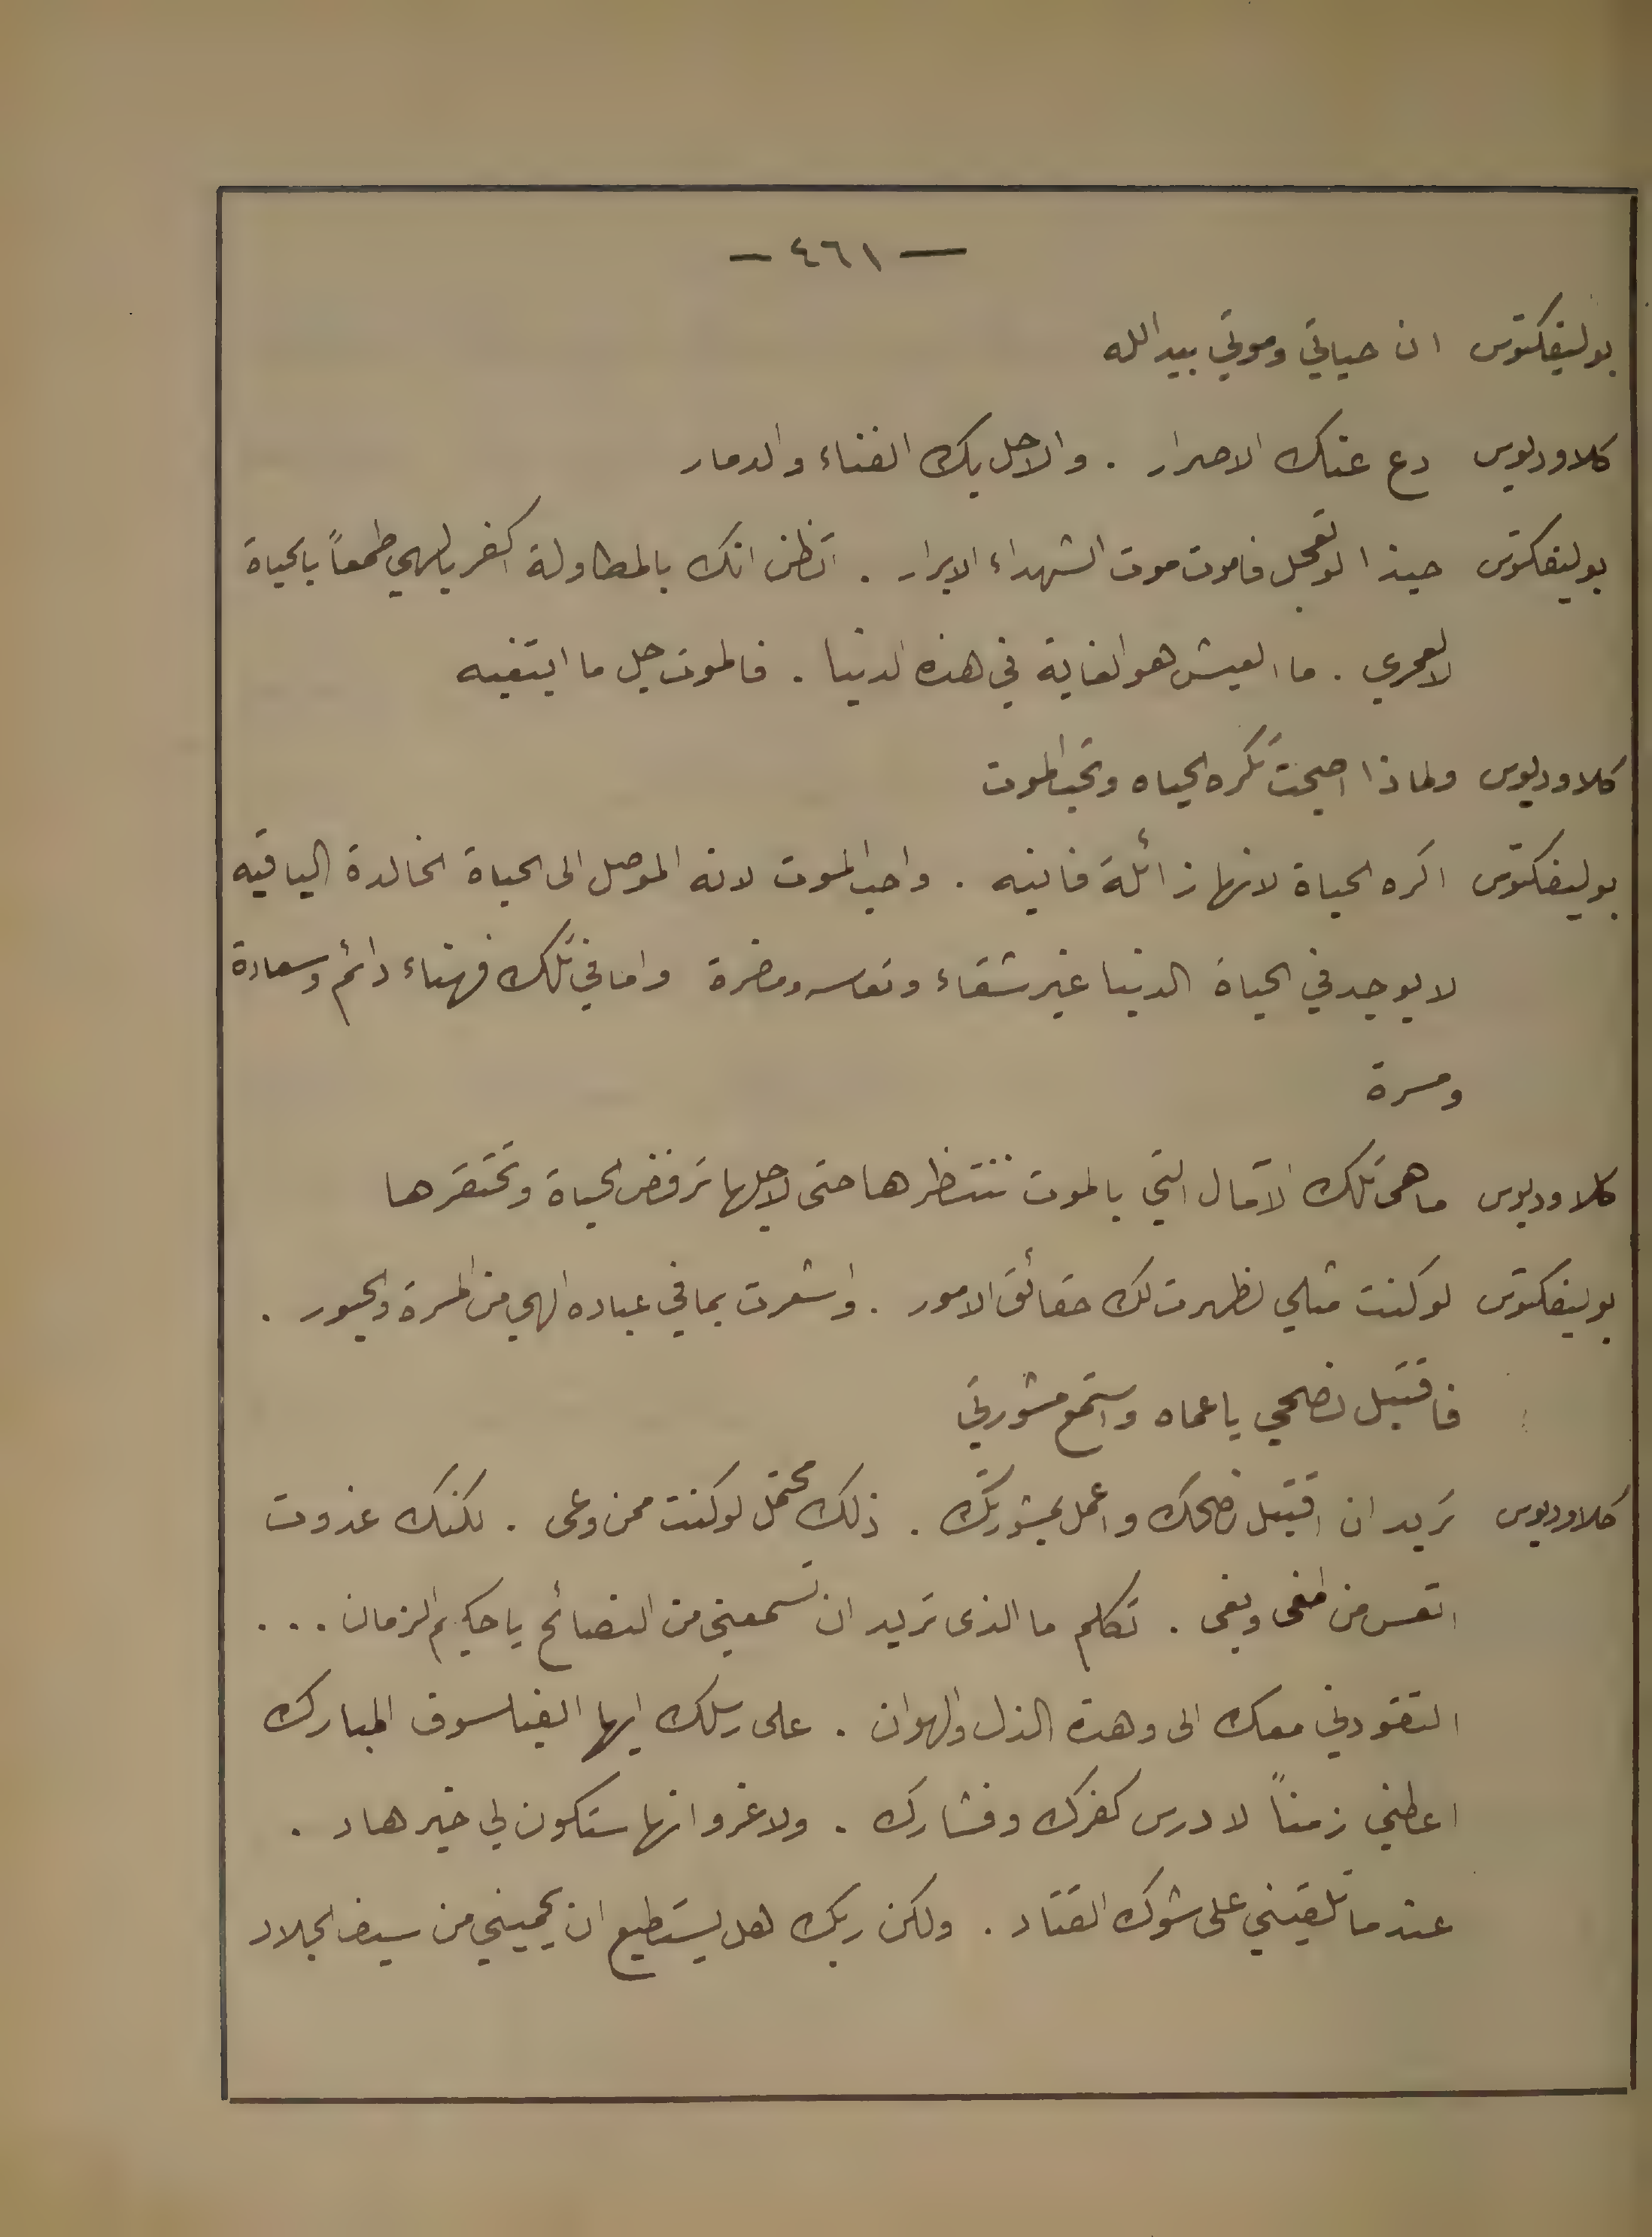 — ٤٦١ —
بوليفكتوس ان حياتي وموتي بيد الله
كلاوديوس دع عنك الاصرار . والاحل بك الفناء والدمار
بوليفكتوس حبذا لو تعجل فاموت موت الشهداء الابرار . اتظن انك بالمطاولة اكفر بالهي طمعاً بالحياة
لا لعمري . ما العيش هو الغاية في هذه الدنيا . فالموت جل ما ابتغيه
كلاوديوس ولماذا اصبحت تكره الحياه وتحب الموت
بوليفكتوس اكره الحياة لانها زائلة فانيه . واحب الموت لانه الموصل الى الحياة الخالدة الباقيه
لا يوجد في الحياة الدنيا غير شقاء وتعاسه ومضرة واما في تلك فهناء دائم وسعادة
ومسرة
كلاوديوس ما هى تلك الآمال التي بالموت تنتظرها حتى لاجلها ترفض الحياة وتحتقرها
بوليفكتوس لو كنت مثلي لظهرت لك حقائق الامور . واشعرت بما في عباده الهي من المسرة والحبور .
فاقتبل نصحي يا عماه واستمع مشورتي
كلاوديوس تريد ان اقتبل نصحك واعمل بمشورتك . ذلك محتمل لو كنت ممن وعى . لكنك غدوت
اتعس من افعى وبغى . تكلم ما الذى تريد ان تسمعينى من النصائح يا حكيم الزمان ...
التقودني معك الى وهدة الذل والهوان . على رسلك ايها الفيلسوف المبارك
اعطني زمناً لا درس كفرك وفشارك . ولا غرو انها ستكون لي خير هاد .
عندما تلقيني على شوك القتاد . ولكن ربك هل يستطيع ان يحميني من سيف الجلاد